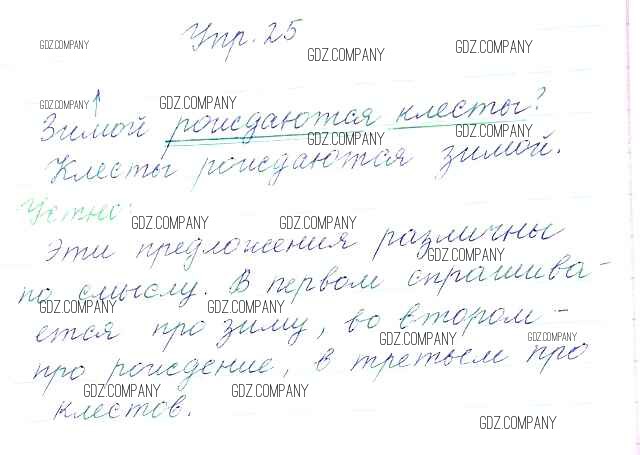 Упр. 25
GDZ.COMPANY GDZ.COMPANY GDZ.COMPANY
GDZ.COMPANY GDZ.COMPANY
Зимой рождаются клесты?
GDZ.COMPANY GDZ.COMPANY
Клесты рождаются зимой.
Устно:
GDZ.COMPANY GDZ.COMPANY
Эти предложения различны
GDZ.COMPANY
по смыслу. В первом спрашива-
GDZ.COMPANY GDZ.COMPANY
ется про зиму, во втором -
GDZ.COMPANY GDZ.COMPANY
про рождение, в третьем про
GDZ.COMPANY GDZ.COMPANY
клестов.
GDZ.COMPANY